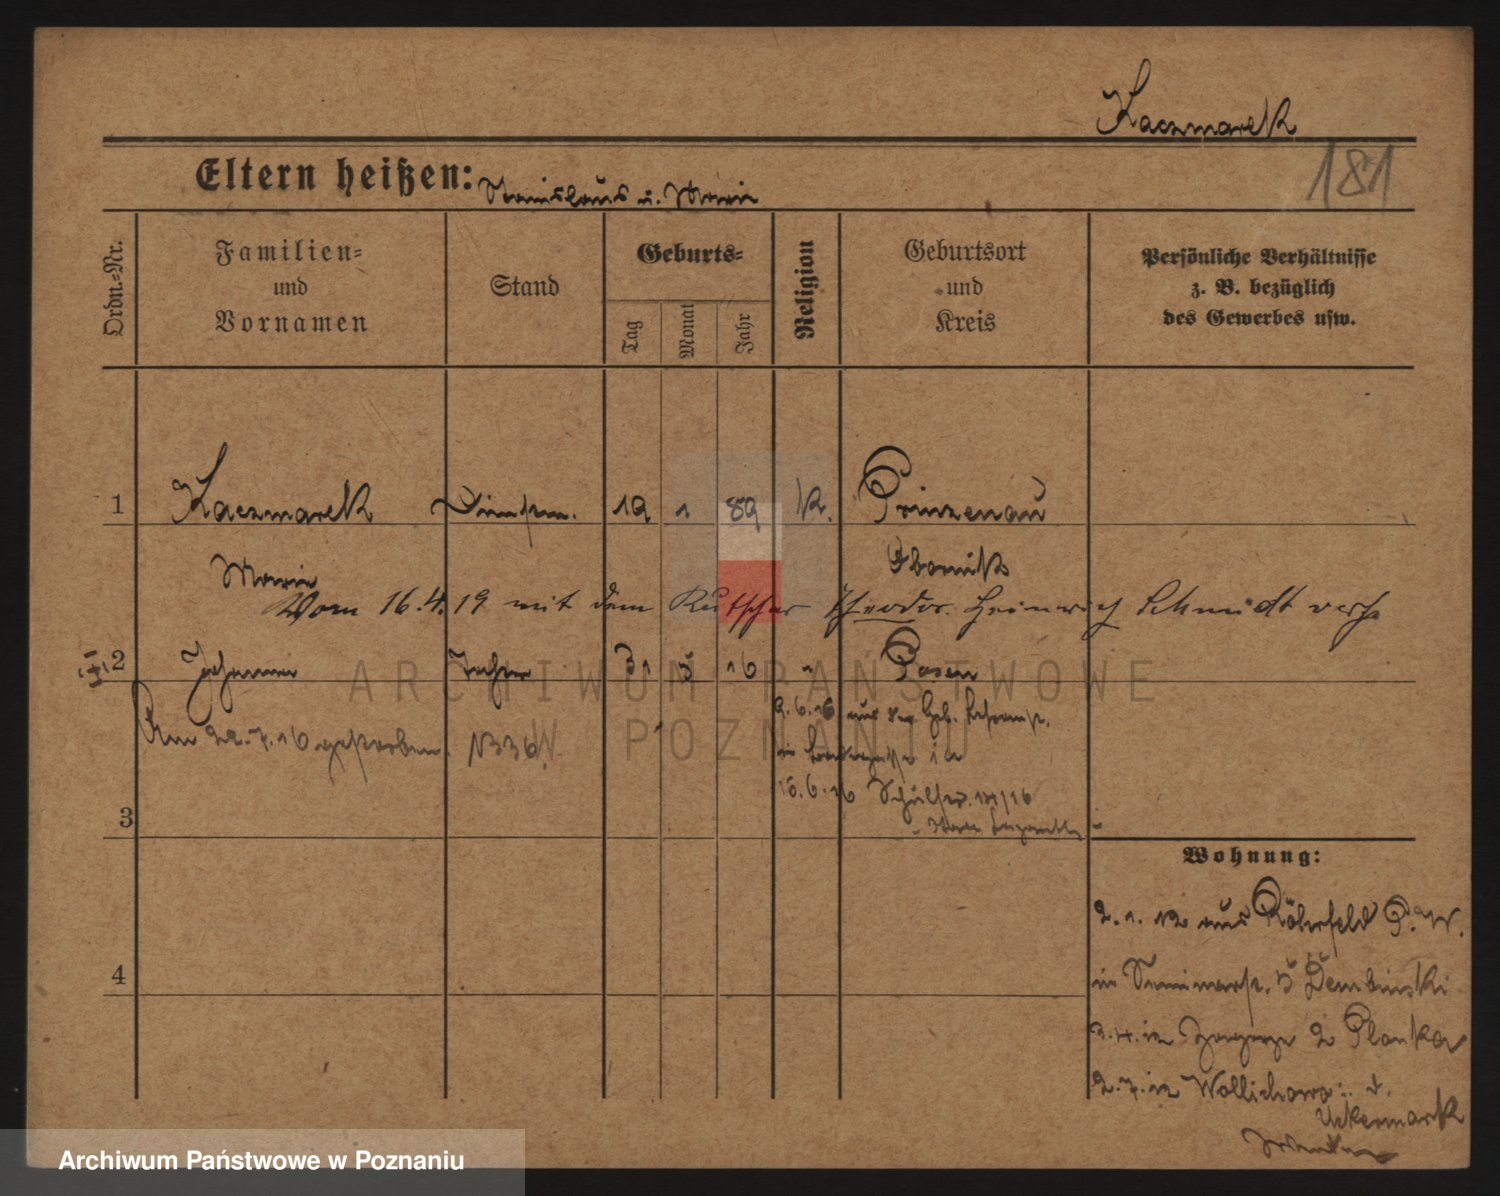 Kaczmarek
181
Eltern heißen: Stanislaus u. Marie
Ordn.-Nr.
Familien-
und
Vornamen
Stand
Geburts-
Tag
Monat
Jahr
Religion
Geburtsort
und
Kreis
Persönliche Verhältnisse
z. B. bezüglich
des Gewerbes usw.
1 Kaczmarek 19 1 89 k. Prinzenau
Marie Obornik
Vom 16.4.19 mit dem Kutscher Theodor Heinrich Schmidt verh.
2 Johanna Tochter 31 5 16 " Posen
Am 22.7.16 gestorben N 336.
9.6.16 aus der Heb.
15.6.16
3
4
Wohnung:
2.1.12 aus Röhrfeld P.W.
in 5 Dembinski
2 Planka
2.7.12 Wallischowo
Uckermark
ARCHIWUM PAŃSTWOWE
W POZNANIU
Archiwum Państwowe w Poznaniu